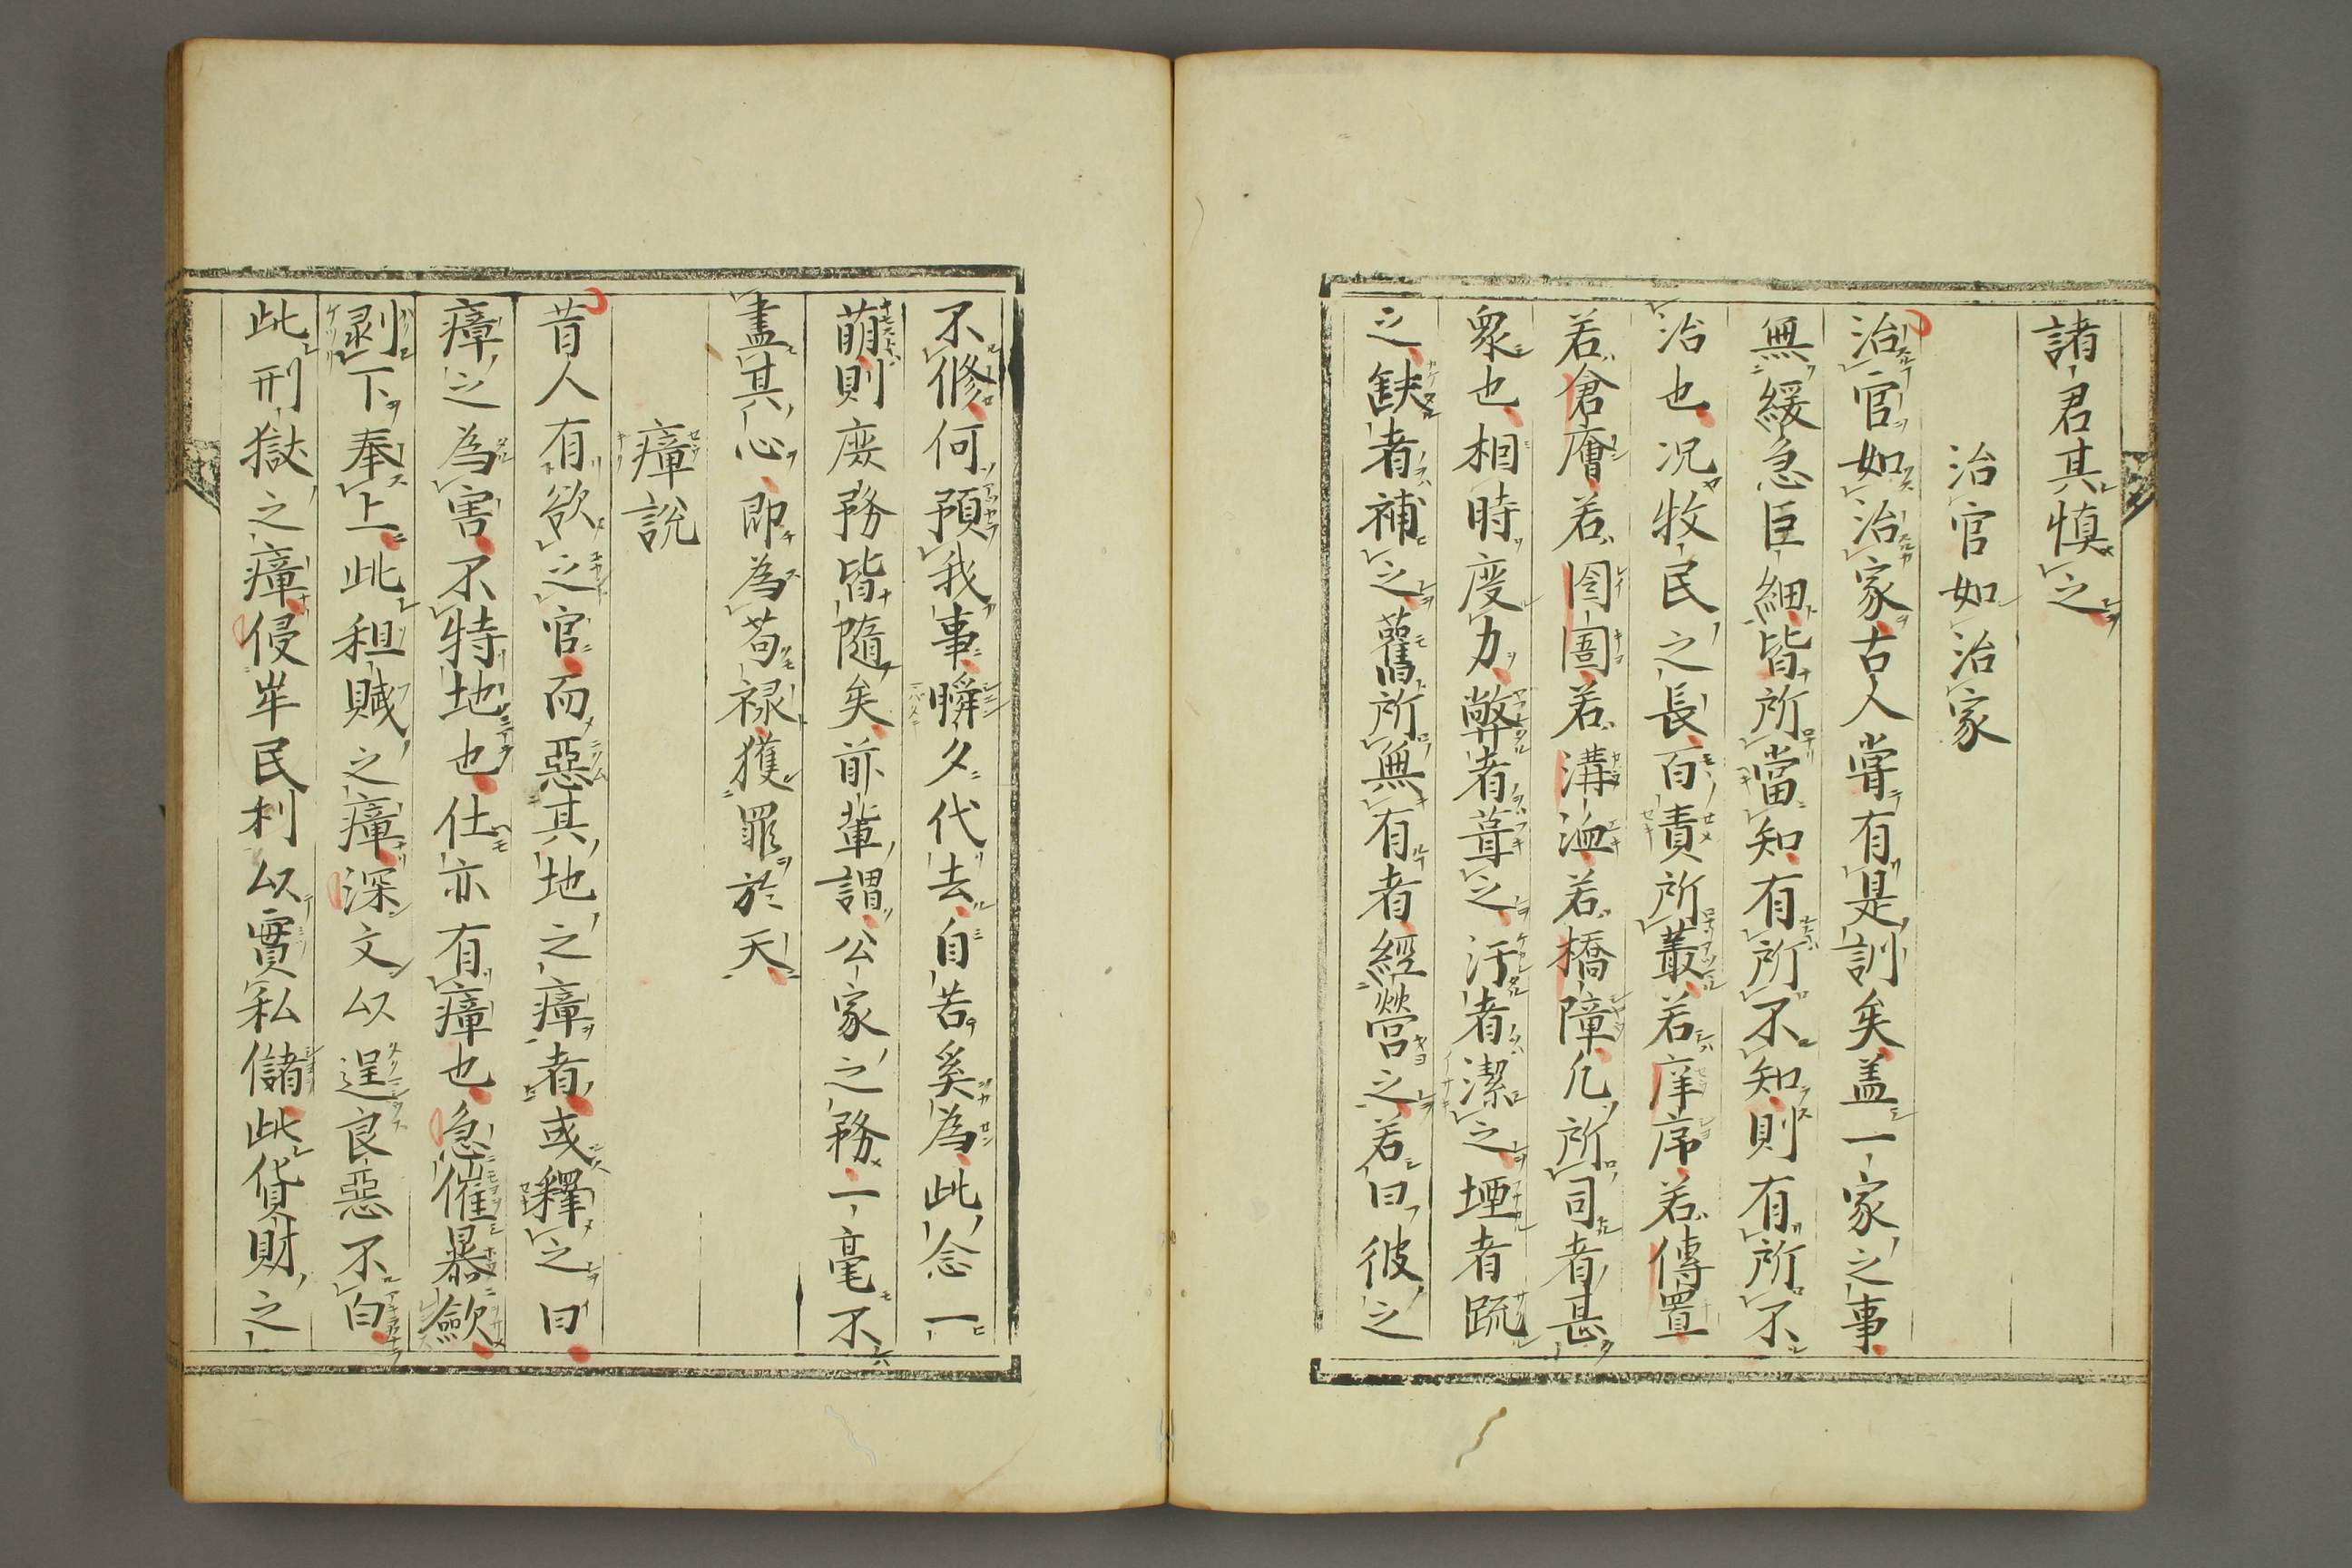 諸君其慎之
治官如治家
治官如治家古人嘗有是訓矣盖一家之事
無緩急臣細皆所當知有所不知則有所不
治也况牧民之長百責所叢若庠序若傳置
若倉廥若囹圄若溝洫若橋障凢所司者甚
衆也相時度力弊者葺之汙者潔之堙者䟽
之缺者補之舊所無有者經營之若曰彼之
不修何預我事瞬夕代去自苦奚為此念一
萌則庶務皆隨矣前輩謂公家之務一毫不
盡其心即為苟禄獲罪於天
瘴說
昔人有欲之官而惡其地之瘴者或釋之曰
瘴之為害不特地也仕亦有瘴也急催暴歛
剥下奉上此租賦之瘴深文以逞良惡不白
此刑獄之瘴侵牟民利以實私儲此貨財之